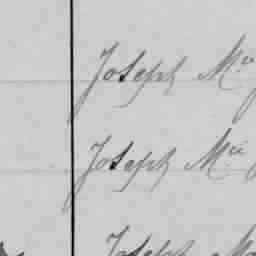 Joseph Mc
Joseph Mc
Joseph